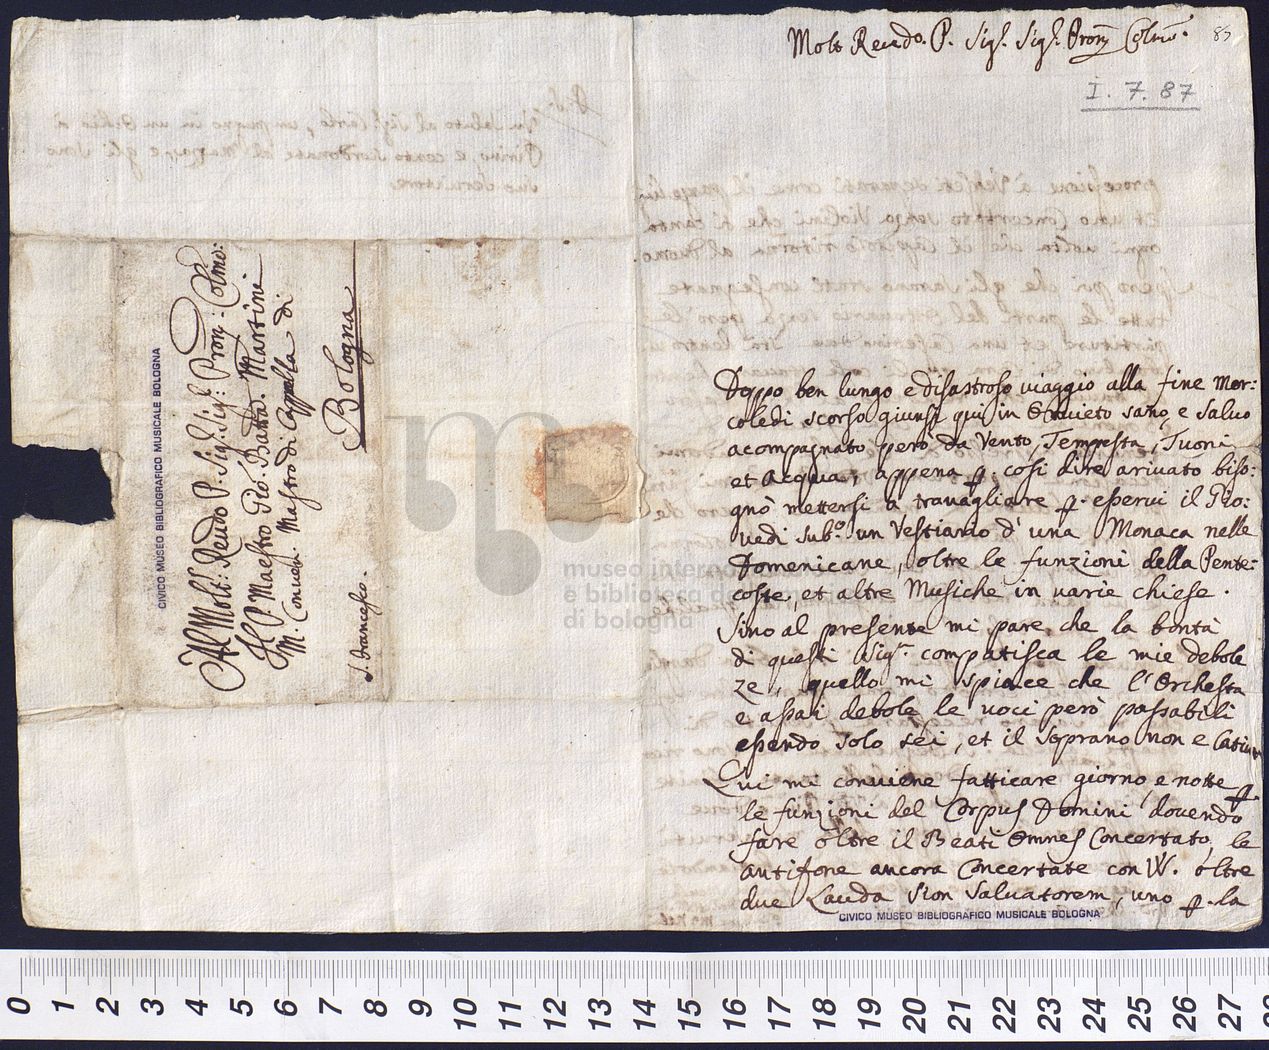 Molt Revdo. P. Sigr. Sigr. Pron Colmo.
87
I. 7. 87
Doppo ben lungo e disastroso viaggio alla fine Mer:
coledi scorso giunsi qui in Orvieto sano, e salvo
acompagnato però da Vento, Tempesta, Tuoni
et Acqua; appena p. cosi dire arivato biso:
gnò mettersi a travagliare p. eservi il Gio:
vedi sub.o un Vestiario d'una Monaca nelle
Domenicane, oltre le funzioni della Pente:
coste, et altre Musiche in varie chiese.
Sino al presente mi pare che la bontà
di questi Sigri. compatisca le mie debole
ze, quello mi spiace che l'Orchesta
e assai debole, le voci però passabili
essendo solo sei, et il soprano non e Cativo
Qui mi conviene fatticare giorno, e notte p.
le funzioni del Corpus Domini, dovendo
fare oltre il Beati Omnes Concertato, le
antifone ancora Concertate con VV. oltre
due Lauda Sion Salvatorem, uno p. la
CIVICO MUSEO BIBLIOGRAFICO MUSICALE BOLOGNA
Al Molt: Revdo P. Sig: Sig: Pron: Colmo:
Il P. Maestro Gio: Batta. Martini
M. Conven. Mastro di Cappella di
Bologna
S. Francesco.
CIVICO MUSEO BIBLIOGRAFICO MUSICALE BOLOGNA
museo
è biblioteca della
di bologna
0 1 2 3 4 5 6 7 8 9 10 11 12 13 14 15 16 17 18 19 20 21 22 23 24 25 26 27